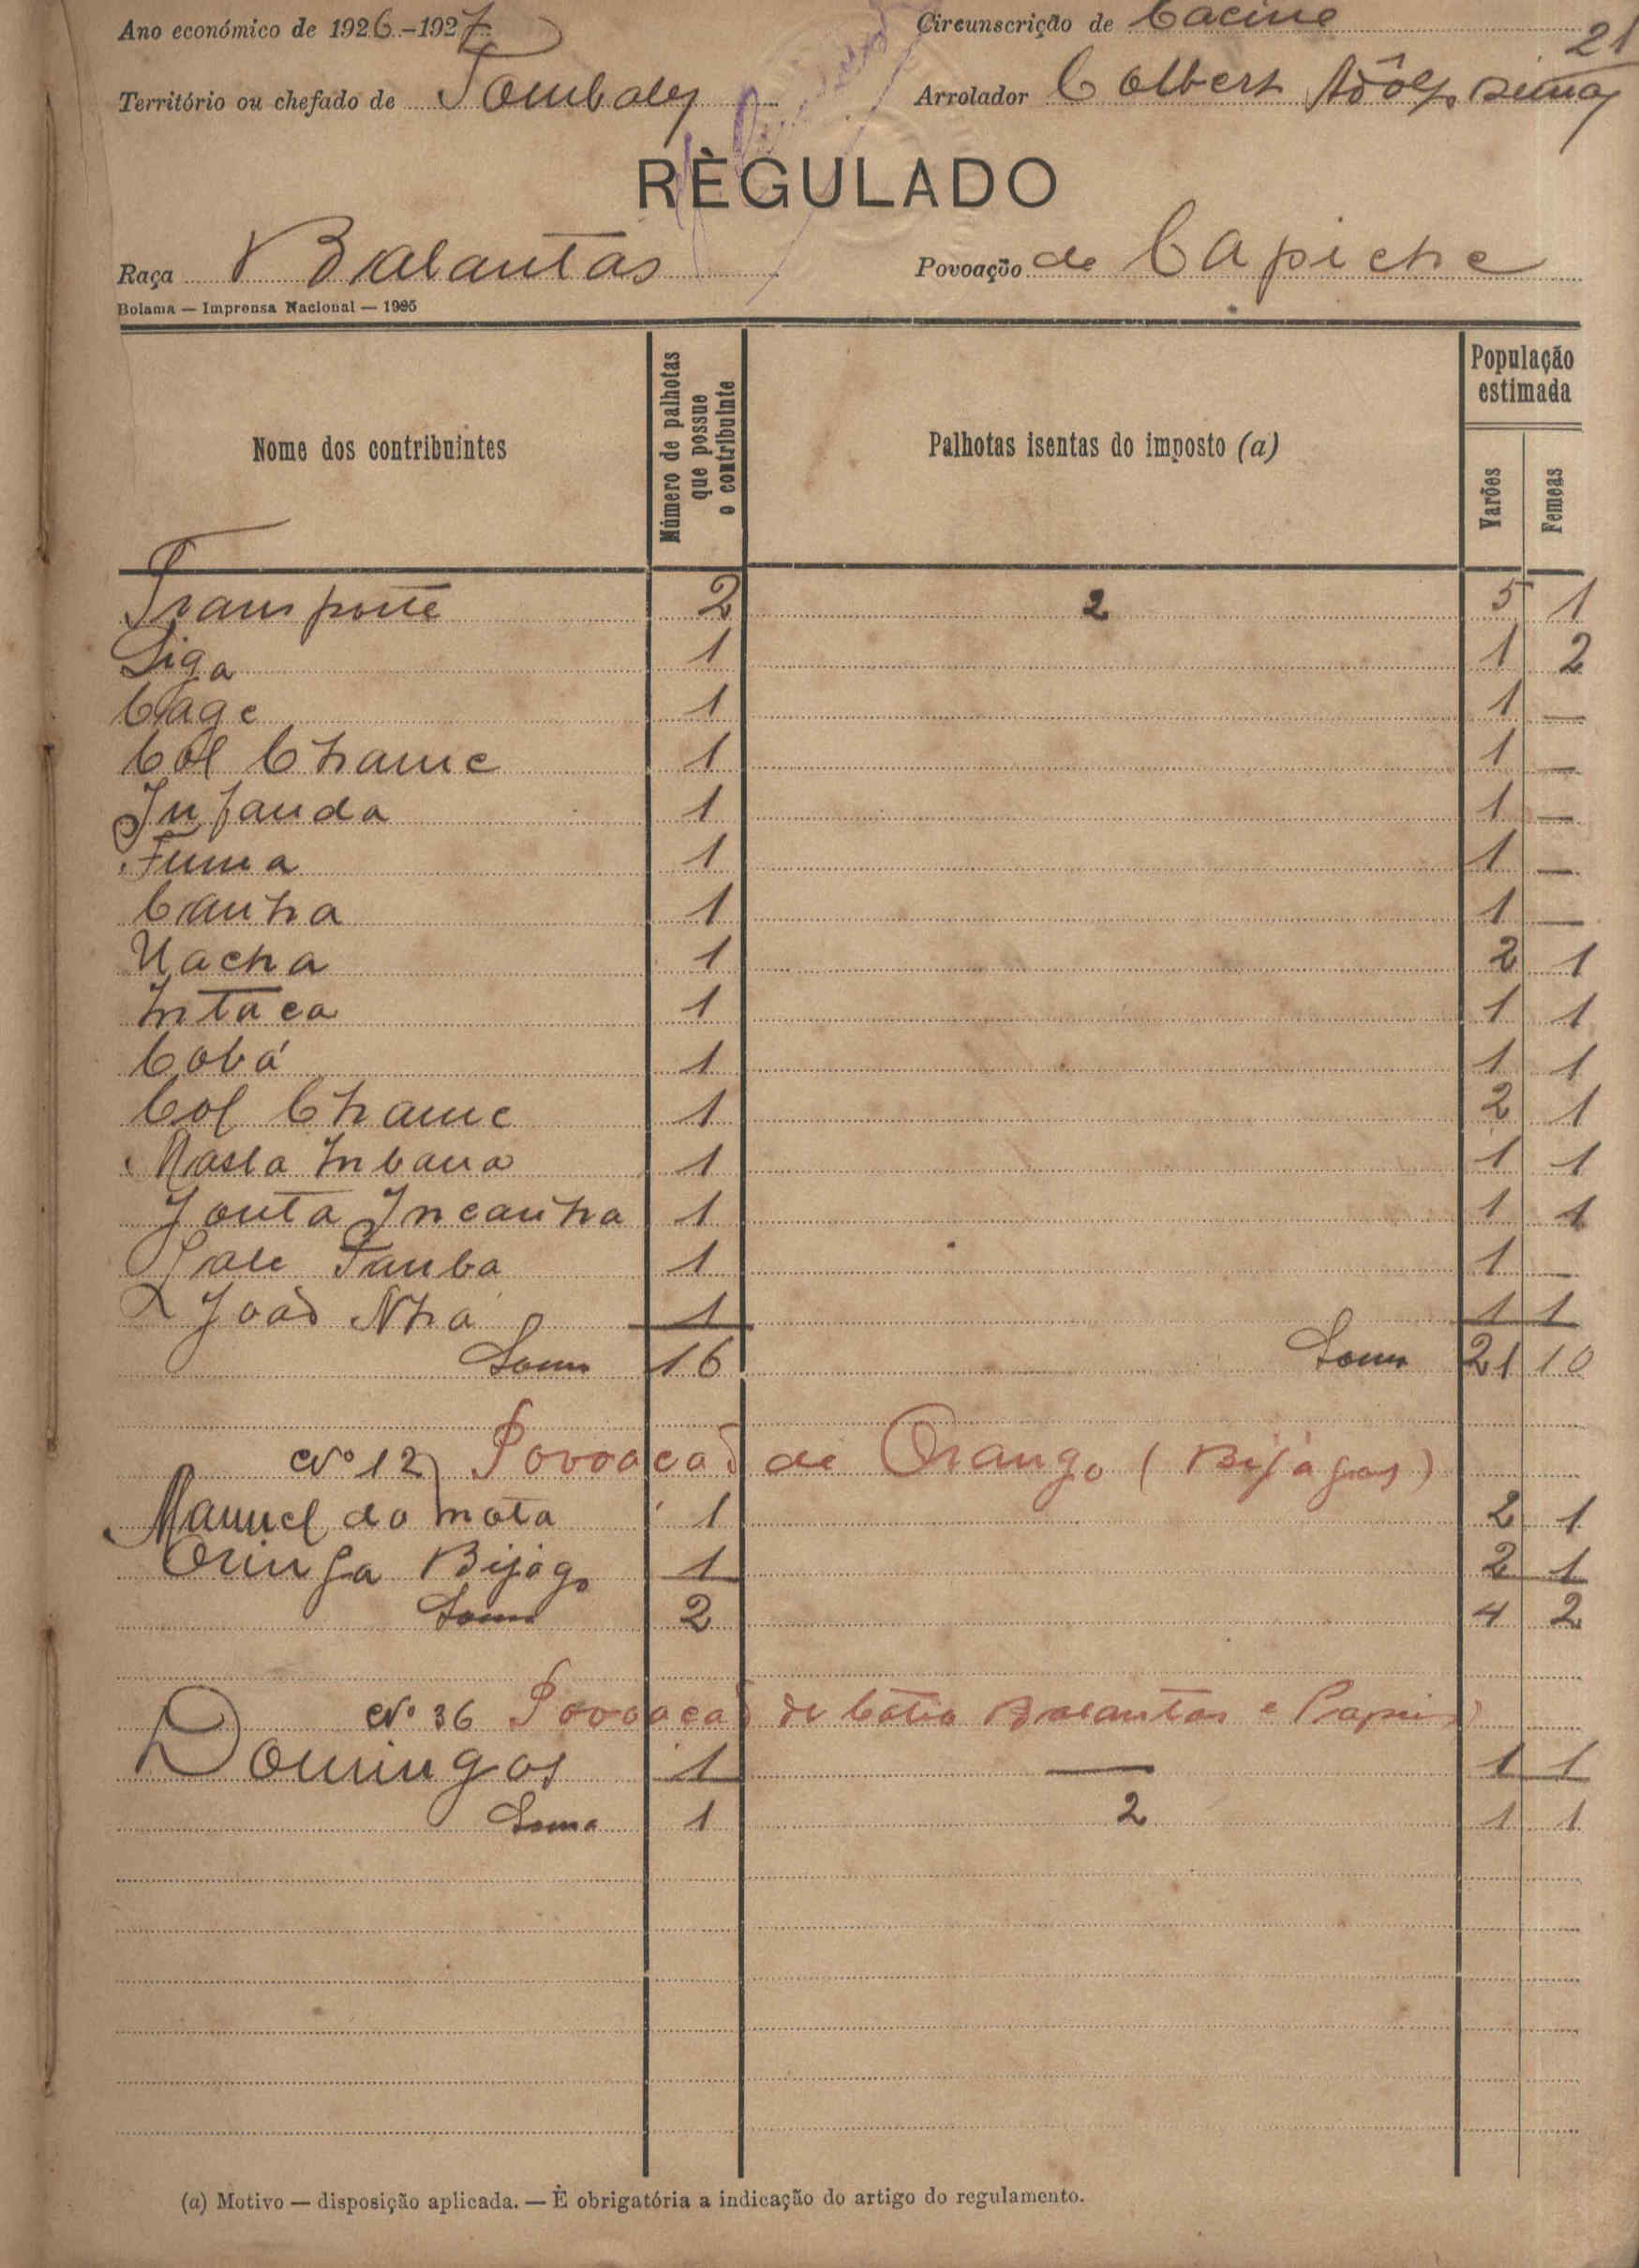 Ano económico de 1926-1927 Circunscrição de Cacine 21
Território ou chefado de Tombaly Arrolador Colbert Adôlfo
RÈGULADO
Raça Balantas Povoação de Capiche
Bolama — Imprensa Nacional — 1925
Nome dos contribuintes
Número de palhotas que possue o contribuinte
Palhotas isentas do imposto (a)
População estimada
Varões
Femeas
Transporte 2 2 5 1
Siga 1 1 2
Cage 1 1 —
Col Chame 1 1 —
Infanda 1 1 —
Fuma 1 1 —
Canha 1 1 —
Uacha 1 2 1
Intaca 1 1 1
Cobá 1 1 1
Col Chame 1 2 1
Masla Inbana 1 1 1
Jonta Incanha 1 1 1
Tamba 1 1 —
João Nhá 1 1 1
Soma 16 Soma 21 10
Nº 12 Povoacão de Orango (Bijágos)
Manuel da mota 1 2 1
Oringa Bijago 1 2 1
Soma 2 4 2
Nº 36 Povoacão de Balantas e Papeis
Domingos 1 — 1 1
Soma 1 2 1 1
(a) Motivo — disposição aplicada. — È obrigatória a indicação do artigo do regulamento.